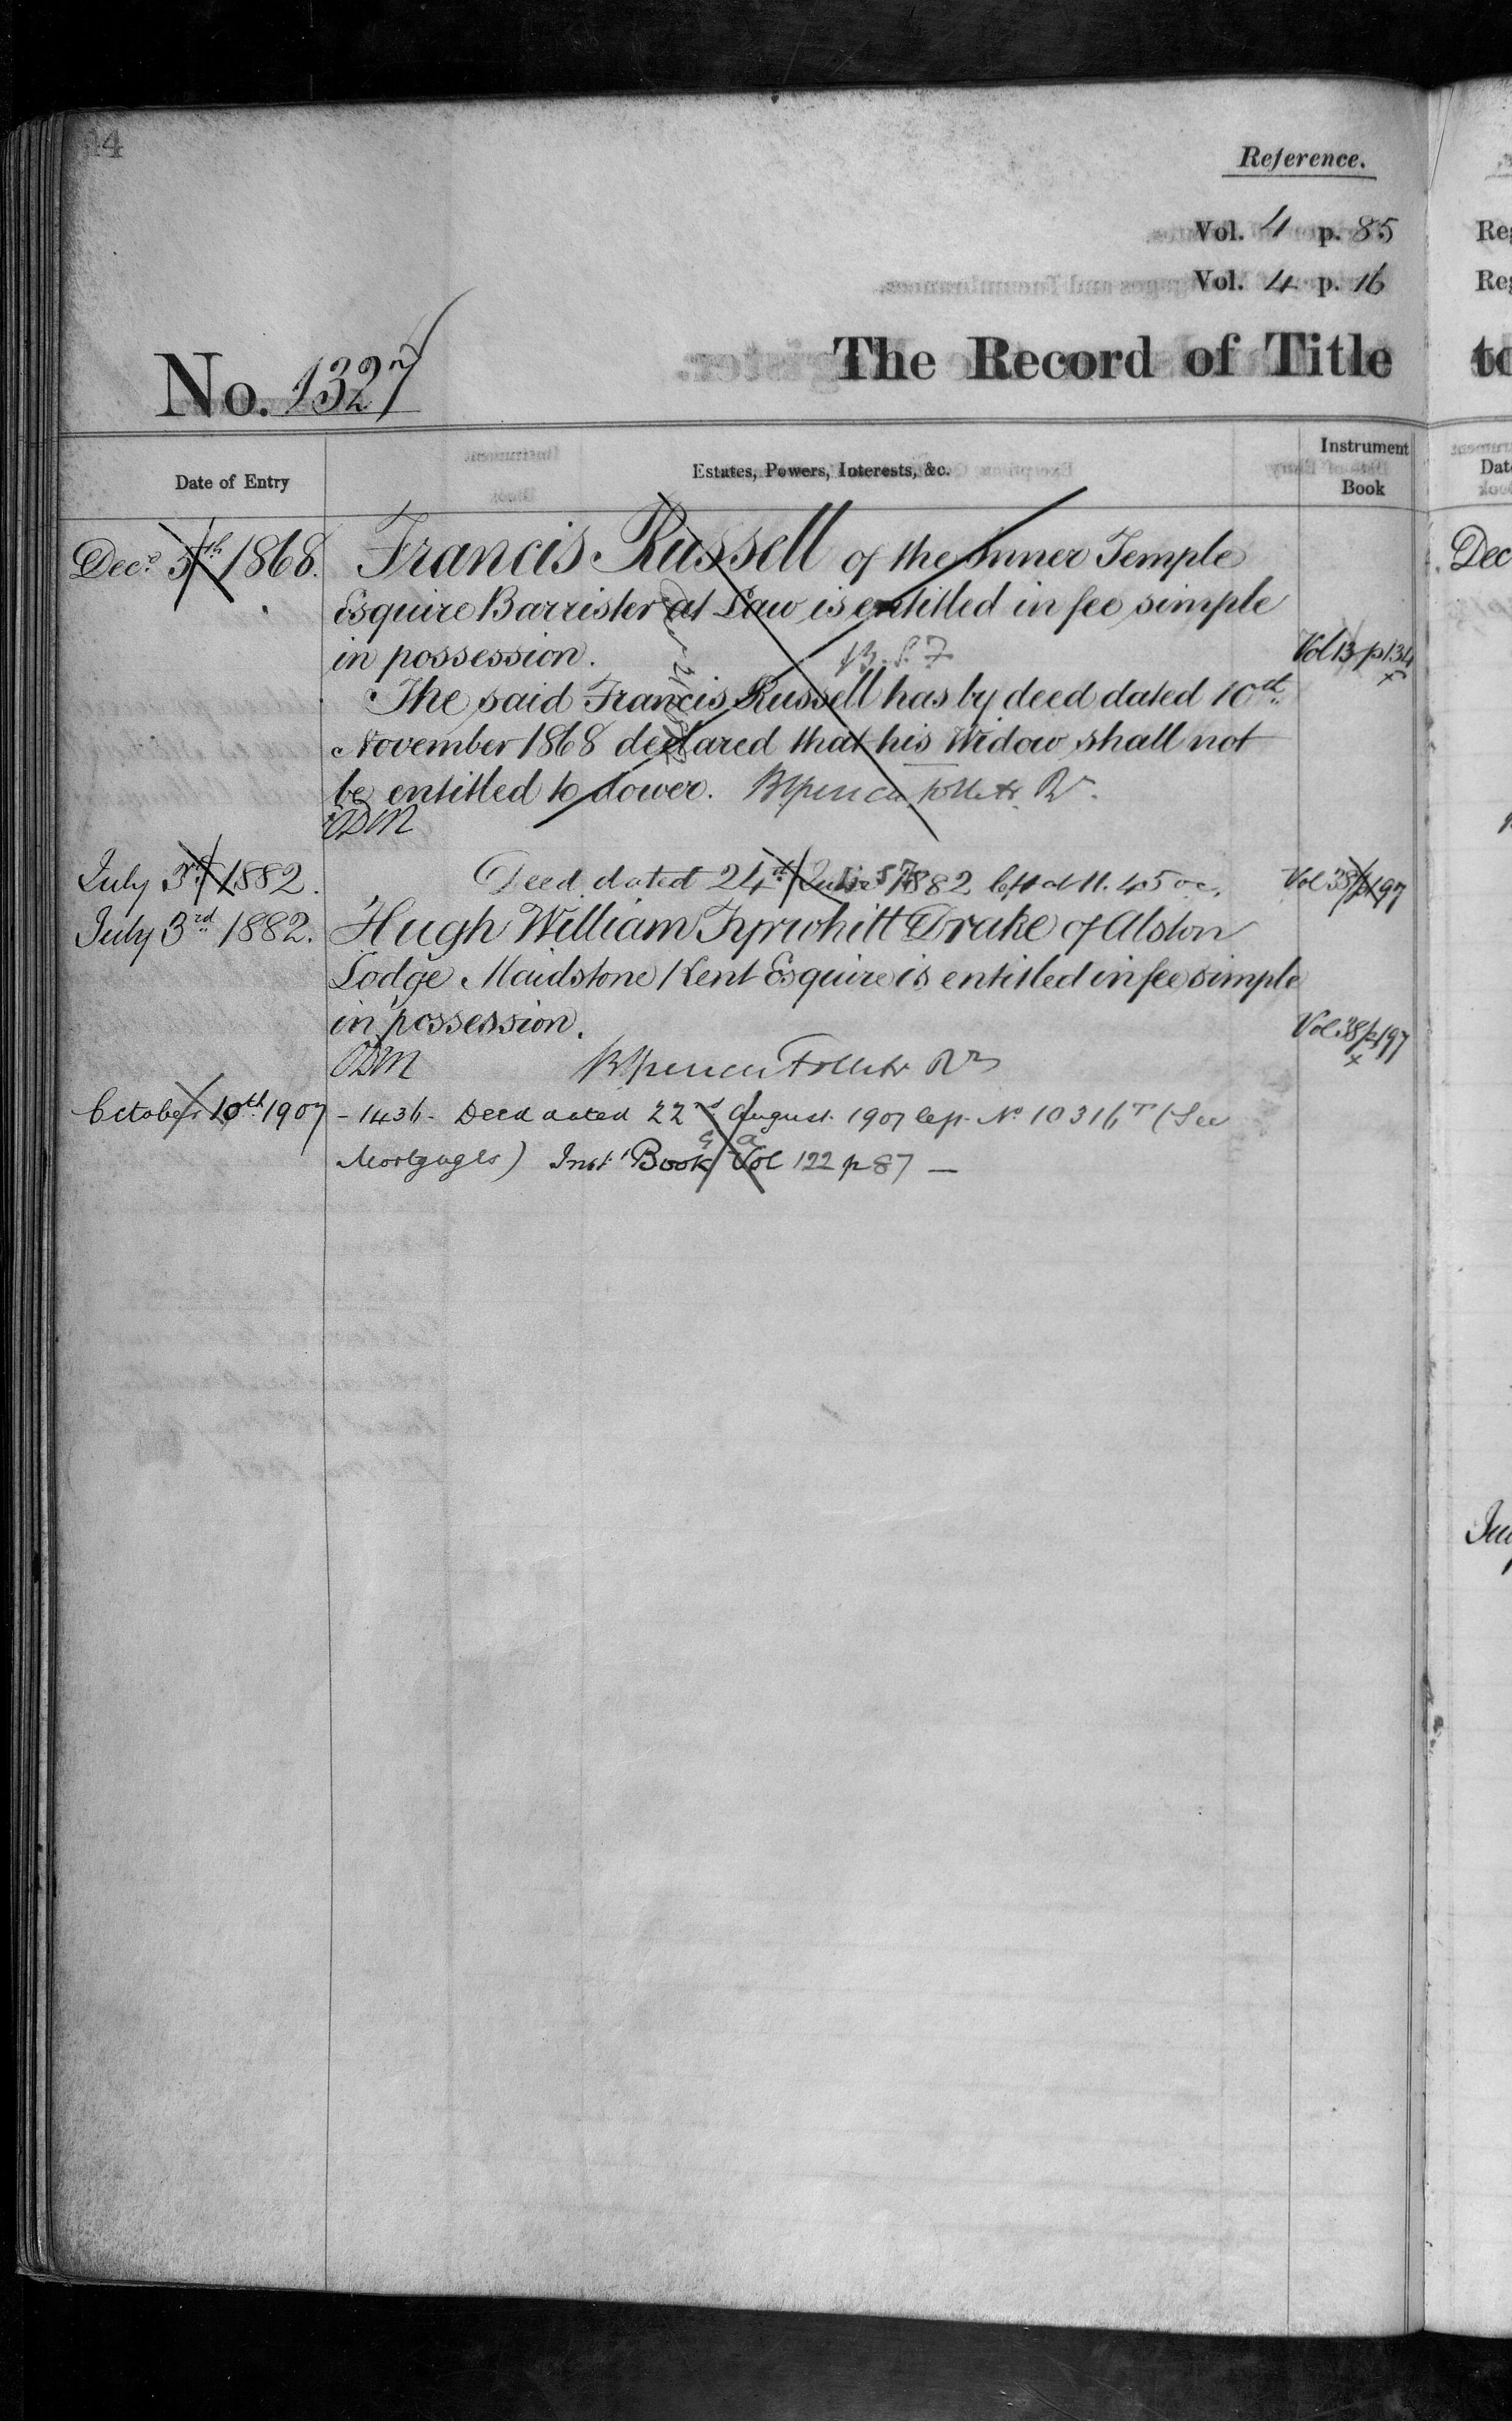 44
Reference.
Vol. 4 p. 85
Vol. 4 p. 16
No. 1327
The Record of Title
Date of Entry
Estates, Powers, Interests, &c.
Instrument Book
Decr. 5th 1868. Francis Russell of the Inner Temple
Esquire Barrister at Law is entitled in fee simple
in possession. B. S. F. Vol 13 p 134
The said Francis Russell has by deed dated 10th
November 1868 declared that his Widow shall not
be entitled to dower. B Spencer Follett Rr.
July 3rd 1882. Deed dated 24th June 1882 left at 11.45 Vol 38 p 197
July 3rd 1882. Hugh William Tyrwhitt Drake of Alston
Lodge Maidstone Kent Esquire is entitled in fee simple
in possession. Vol 38 p 197
B Spencer Follett Rr
October 10th 1907 - 1436 - Deed dated 22nd August 1907 No 10316T (See
Mortgages) Inst Book Vol 122 p 87 —
Reg
Reg
to
Dat
Dec